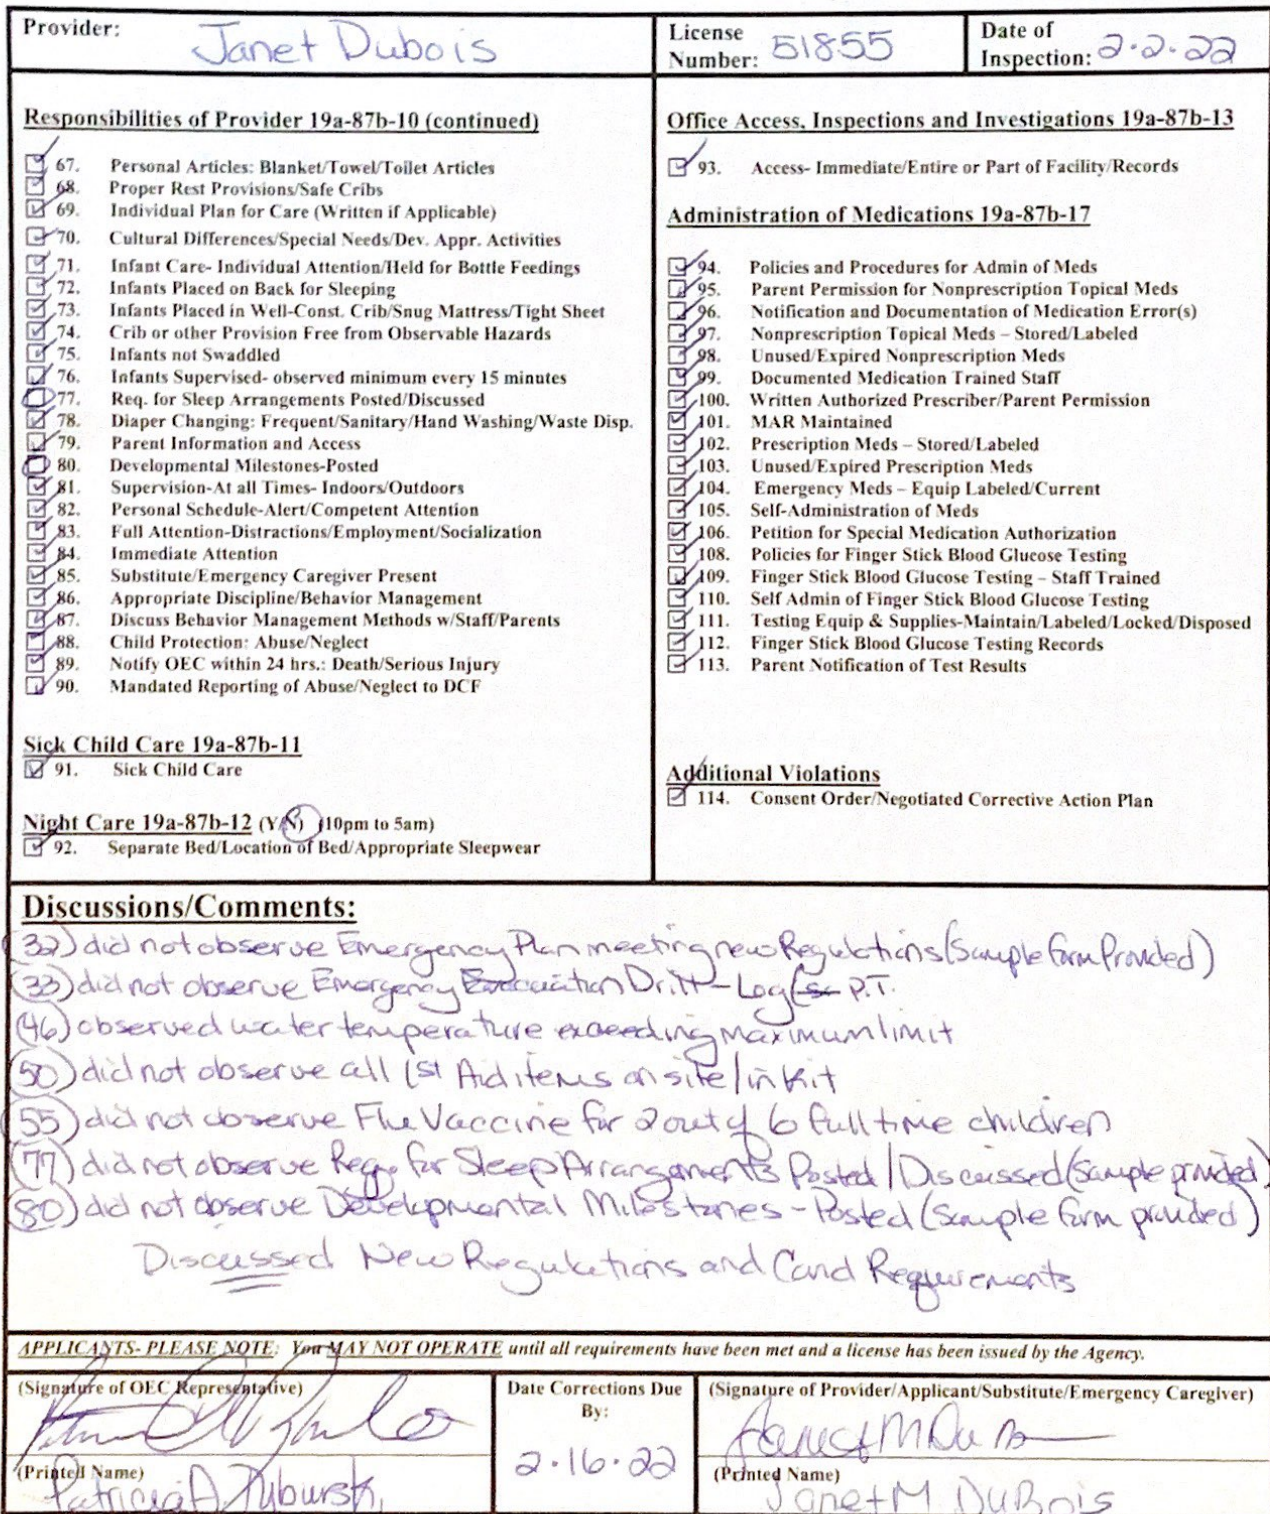 Provider: Janet Dubois
License Number: 51855
Date of Inspection: 2.2.22
Responsibilities of Provider 19a-87b-10 (continued)
67. Personal Articles: Blanket/Towel/Toilet Articles
68. Proper Rest Provisions/Safe Cribs
69. Individual Plan for Care (Written if Applicable)
70. Cultural Differences/Special Needs/Dev. Appr. Activities
71. Infant Care- Individual Attention/Held for Bottle Feedings
72. Infants Placed on Back for Sleeping
73. Infants Placed in Well-Const. Crib/Snug Mattress/Tight Sheet
74. Crib or other Provision Free from Observable Hazards
75. Infants not Swaddled
76. Infants Supervised- observed minimum every 15 minutes
77. Req. for Sleep Arrangements Posted/Discussed
78. Diaper Changing: Frequent/Sanitary/Hand Washing/Waste Disp.
79. Parent Information and Access
80. Developmental Milestones-Posted
81. Supervision-At all Times- Indoors/Outdoors
82. Personal Schedule-Alert/Competent Attention
83. Full Attention-Distractions/Employment/Socialization
84. Immediate Attention
85. Substitute/Emergency Caregiver Present
86. Appropriate Discipline/Behavior Management
87. Discuss Behavior Management Methods w/Staff/Parents
88. Child Protection: Abuse/Neglect
89. Notify OEC within 24 hrs.: Death/Serious Injury
90. Mandated Reporting of Abuse/Neglect to DCF
Sick Child Care 19a-87b-11
91. Sick Child Care
Night Care 19a-87b-12 (Y/N) (10pm to 5am)
92. Separate Bed/Location of Bed/Appropriate Sleepwear
Office Access, Inspections and Investigations 19a-87b-13
93. Access- Immediate/Entire or Part of Facility/Records
Administration of Medications 19a-87b-17
94. Policies and Procedures for Admin of Meds
95. Parent Permission for Nonprescription Topical Meds
96. Notification and Documentation of Medication Error(s)
97. Nonprescription Topical Meds – Stored/Labeled
98. Unused/Expired Nonprescription Meds
99. Documented Medication Trained Staff
100. Written Authorized Prescriber/Parent Permission
101. MAR Maintained
102. Prescription Meds – Stored/Labeled
103. Unused/Expired Prescription Meds
104. Emergency Meds – Equip Labeled/Current
105. Self-Administration of Meds
106. Petition for Special Medication Authorization
108. Policies for Finger Stick Blood Glucose Testing
109. Finger Stick Blood Glucose Testing – Staff Trained
110. Self Admin of Finger Stick Blood Glucose Testing
111. Testing Equip & Supplies-Maintain/Labeled/Locked/Disposed
112. Finger Stick Blood Glucose Testing Records
113. Parent Notification of Test Results
Additional Violations
114. Consent Order/Negotiated Corrective Action Plan
Discussions/Comments:
(32) did not observe Emergency Plan meeting new Regulations (Sample form Provided)
(33) did not observe Emergency Evacuation Drill - Log P.T.
(46) observed water temperature exceeding maximum limit
(50) did not observe all 1st Aid items on site/in Kit
(55) did not observe Flu Vaccine for 2 out of 6 full time children
(77) did not observe Req. for Sleep Arrangements Posted/Discussed (Sample provided)
(80) did not observe Developmental Milestones - Posted (Sample form provided)
Discussed New Regulations and Cand Requirements
APPLICANTS- PLEASE NOTE: You MAY NOT OPERATE until all requirements have been met and a license has been issued by the Agency.
(Signature of OEC Representative)
(Printed Name)
Patricia A
Date Corrections Due By:
2.16.22
(Signature of Provider/Applicant/Substitute/Emergency Caregiver)
Janet M Du
(Printed Name)
Janet M. DuBois